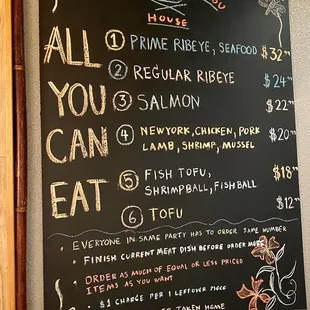 OU
HOUSE
ALL YOU CAN EAT
1 PRIME RIBEYE, SEAFOOD $32
2 REGULAR RIBEYE $24
3 SALMON $22
4 NEWYORK, CHICKEN, PORK $20
LAMB, SHRIMP, MUSSEL
5 FISH TOFU, $18
SHRIMPBALL, FISHBALL
6 TOFU $12
• EVERYONE IN SAME PARTY HAS TO ORDER SAME NUMBER
• FINISH CURRENT MEAT DISH BEFORE ORDER MORE
• ORDER AS MUCH OF EQUAL OR LESS PRICED
ITEMS AS YOU WANT
• $1 CHARGE PER 1 LEFTOVER PIECE
TAKEN HOME